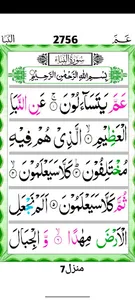 النبا 2756 عم
سورة النبا
بسم الله الرحمن الرحيم
عَمَّ يَتَسَآءَلُوۡنَ‌ۚ ۞ عَنِ النَّبَاِ
الۡعَظِيۡمِۙ ۞ الَّذِىۡ هُمۡ فِيۡهِ
مُخۡتَلِفُوۡنَؕ ۞ كَلَّا سَيَعۡلَمُوۡنَۙ ۞
ثُمَّ كَلَّا سَيَعۡلَمُوۡنَ ۞ اَلَمۡ نَجۡعَلِ
الۡاَرۡضَ مِهٰدًا ۙ ۞ وَّالۡجِبَالَ
منزل7